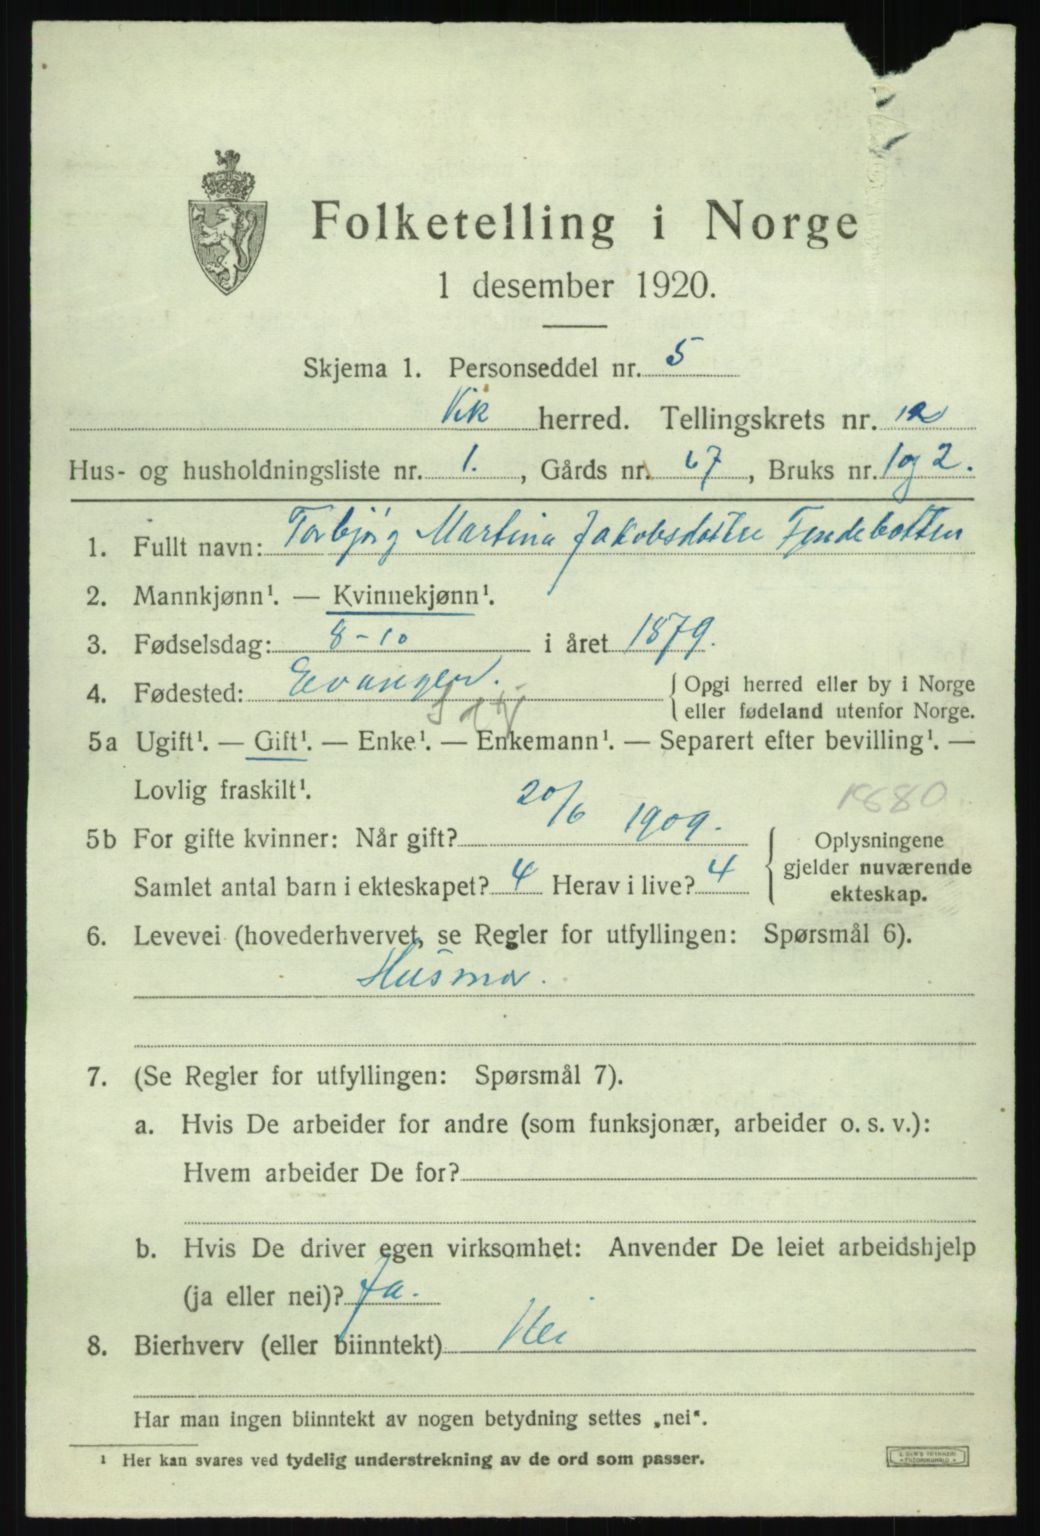 Folketelling i Norge
1 desember 1920.
Skjema 1. Personseddel nr. 5
Vik herred. Tellingskrets nr. 12
Hus- og husholdningsliste nr. 1. , Gårds nr. 67 , Bruks nr. 1 og 2.
1. Fullt navn: Torbjørg Martina Jakobsdotter Tyndebotten
2. Mannkjønn¹. — Kvinnekjønn¹.
3. Fødselsdag: 8-10 i året 1879.
4. Fødested: Evanger. { Opgi herred eller by i Norge
eller fødeland utenfor Norge.
5a Ugift¹. — Gift¹. — Enke¹. — Enkemann¹. — Separert efter bevilling¹. —
Lovlig fraskilt¹.
1880
5b For gifte kvinner: Når gift? 20/6 1909. { Oplysningene
Samlet antal barn i ekteskapet? 4 Herav i live? 4 gjelder nuværende
ekteskap.
6. Levevei (hovederhvervet, se Regler for utfyllingen: Spørsmål 6).
Husmor.
7. (Se Regler for utfyllingen: Spørsmål 7).
a. Hvis De arbeider for andre (som funksjonær, arbeider o. s. v.):
Hvem arbeider De for?
b. Hvis De driver egen virksomhet: Anvender De leiet arbeidshjelp
(ja eller nei)? Ja.
8. Bierhverv (eller biinntekt) Nei
Har man ingen biinntekt av nogen betydning settes „nei“.
¹ Her kan svares ved tydelig understrekning av de ord som passer.